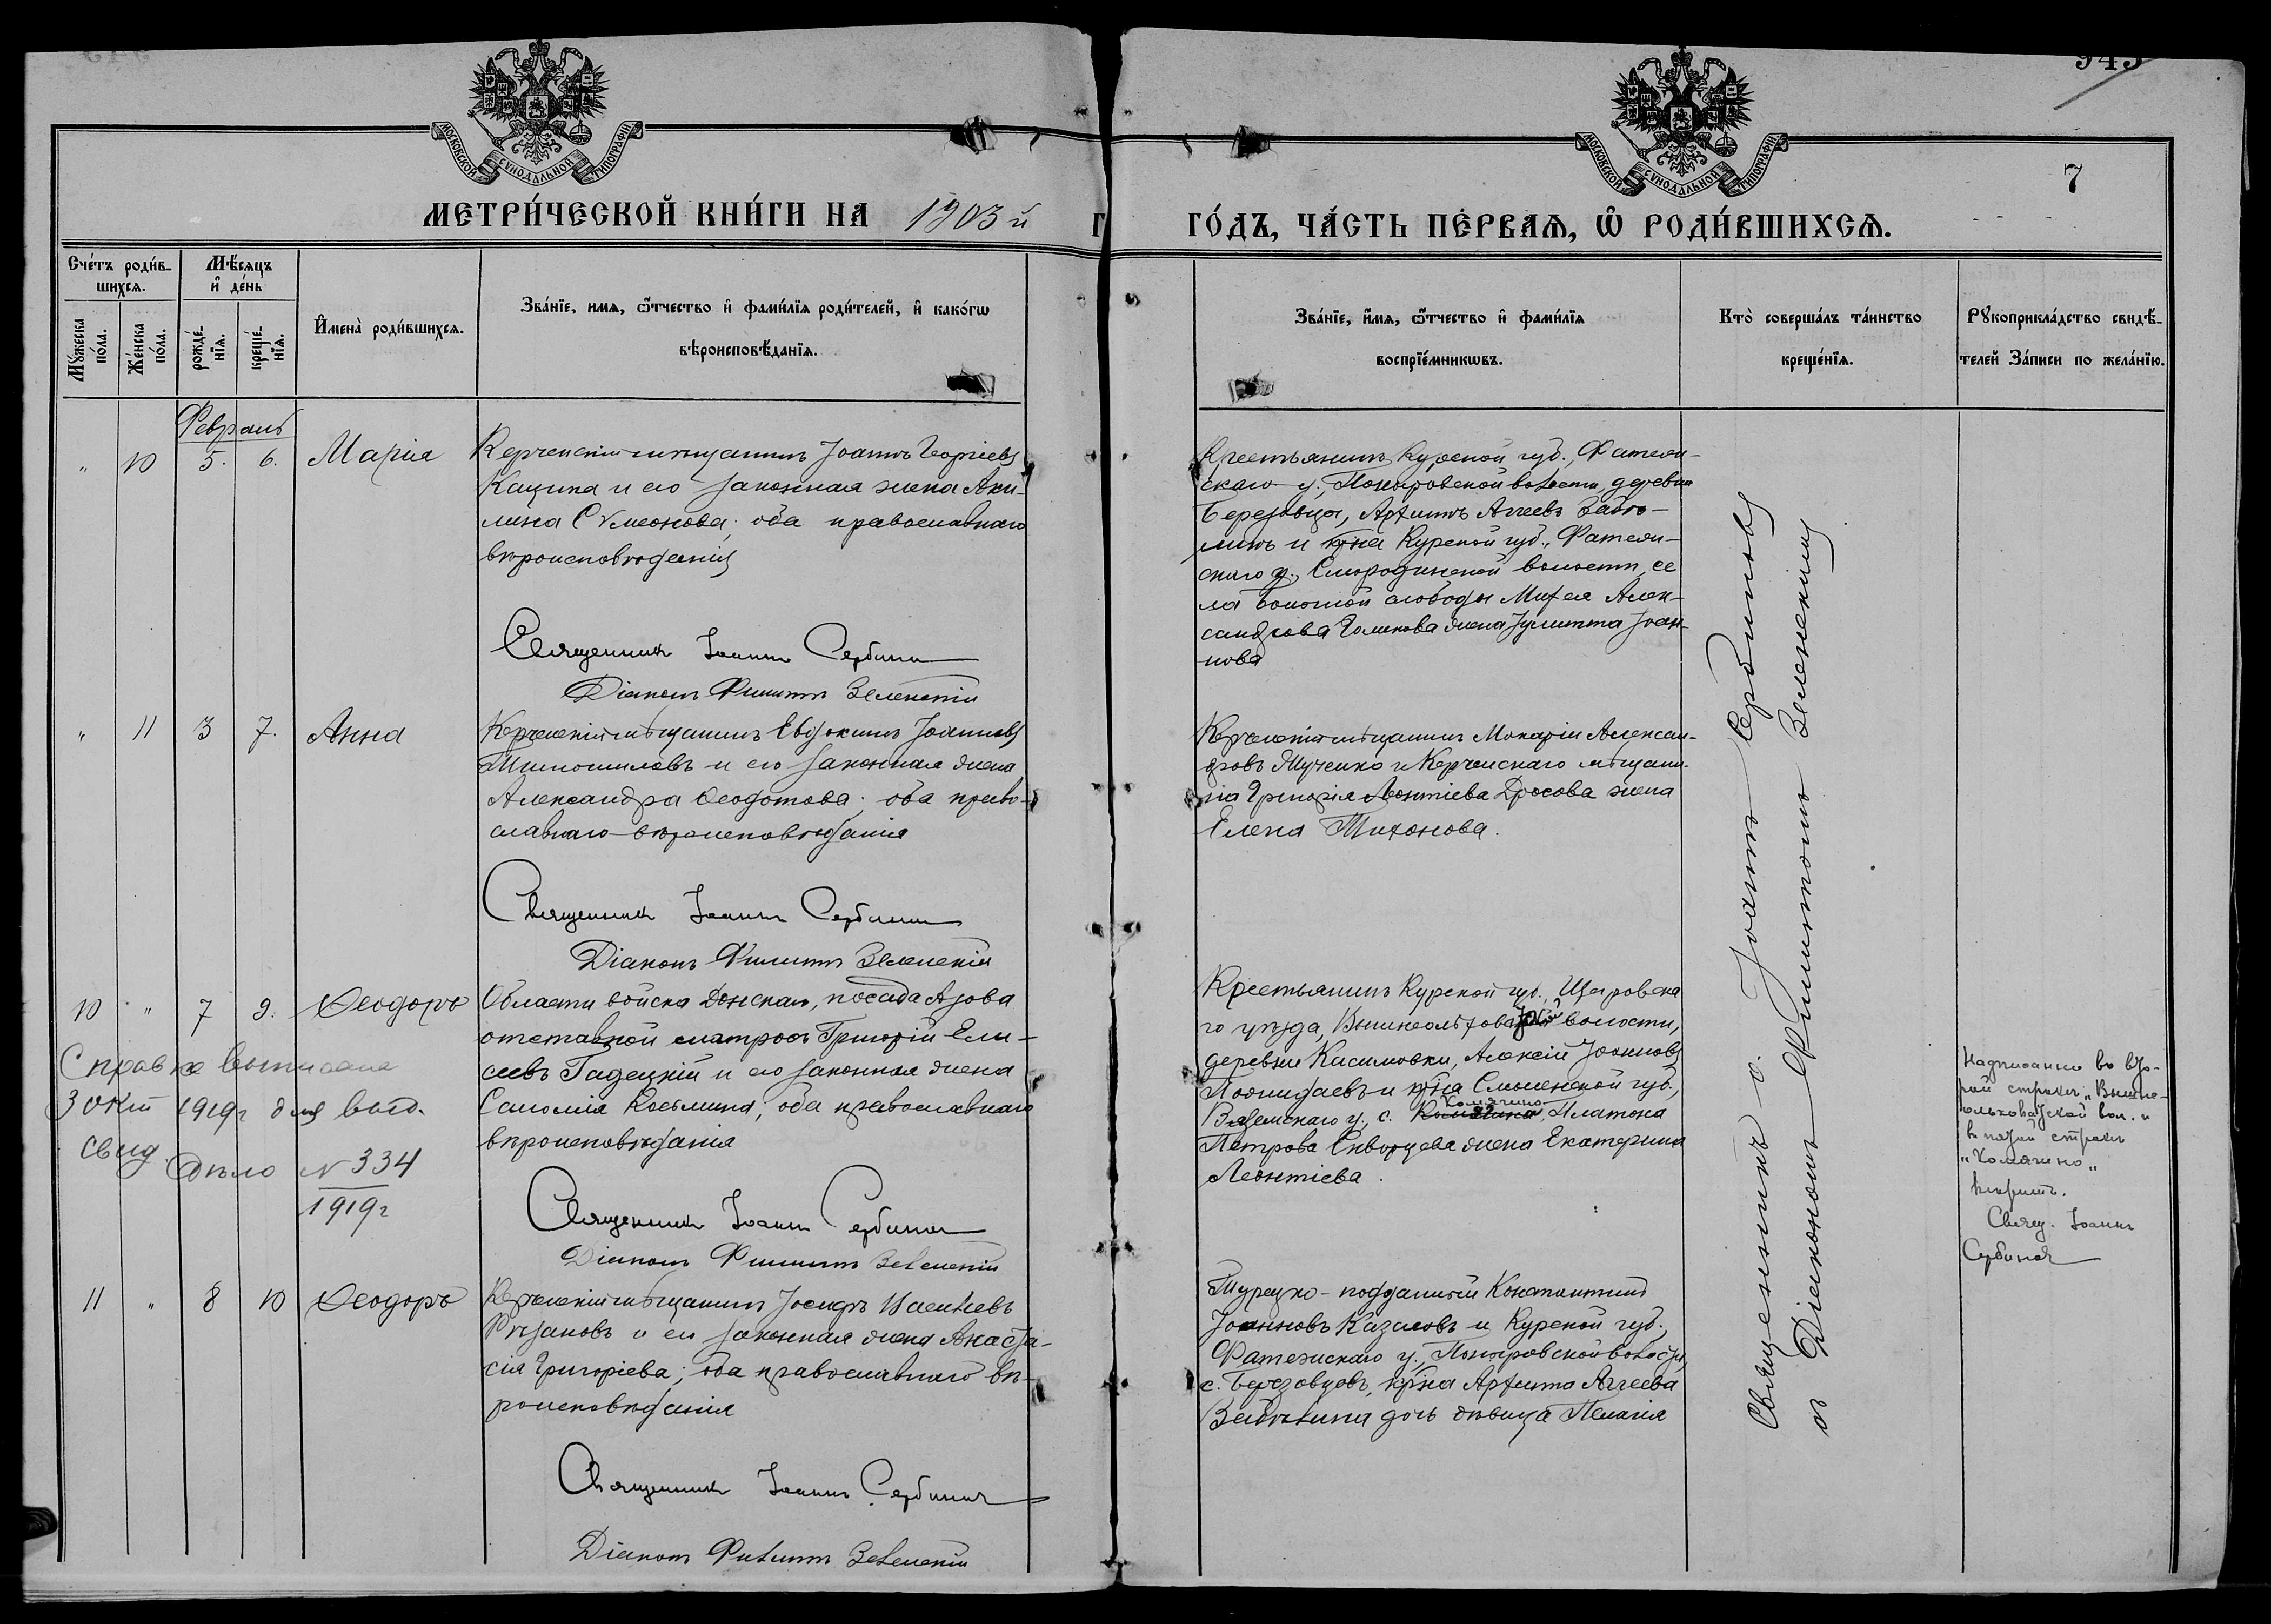 945
7
МОСКОВСКОЙ СѴНОДАЛЬНОЙ ТИПОГРАФІИ
МОСКОВСКОЙ СѴНОДАЛЬНОЙ ТИПОГРАФІИ
МЕТРИ́ЧЕСКОЙ КНИ́ГИ НА 1903 й
ГО́ДЪ, ЧА́СТЬ ПЕ́РВАѦ, Ѡ РОДИ́ВШИХСѦ.
Сче́тъ роди́в-
шихсѧ.
Мꙋ́жеска по́ла.
Же́нска по́ла.
Мѣ́сѧцъ
и҆ де́нь
рожде́-
нїѧ.
креще́-
нїѧ.
И҆мена̀ роди́вшихсѧ.
Зва́нїе, имѧ, ѻ҆́тчество и҆ фами́лїѧ роди́телей, и҆ како́гѡ
вѣроисповѣ́данїѧ.
Зва́нїе, и҆́мѧ, ѻ҆́тчество и҆ фами́лїѧ
воспрїе́мникѡвъ.
Кто̀ соверша́лъ та́инство
креще́нїѧ.
Рꙋкоприкла́дство свидѣ́-
телей За́писи по жела́нїю.
Февраль
" 10 5. 6. Марія
Керченскій мѣщанинъ Іоаннъ Георгіевъ
Кацика и его законная жена Аки-
лина Сѵмеонова; оба православнаго
вѣроисповѣданія
Священникъ Іоаннъ Сербиновъ
Діаконъ Филиппъ Зеленскій
Крестьянинъ Курской губ., Фатеж-
скаго у., Поныровской волости, деревни
Березовца, Архиппъ Аггеевъ Забо-
линъ и кр-на Курской губ., Фатеж-
скаго у., Смородинской волости, се
ла Бологой слободы Михея Алек-
сандрова Голикова жена Іулитта Іоан-
нова
" 11 3 7. Анна
Керченскій мѣщанинъ Евдокимъ Іоанновъ
Тимошиловъ и его законная жена
Александра Ѳеодотова; оба право-
славнаго вѣроисповѣданія
Священникъ Іоаннъ Сербиновъ
Діаконъ Филиппъ Зеленскій
Керченскій мѣщанинъ Макарій Алексан-
дровъ Тученко и Керченскаго мѣщани-
на Григорія Леонтіева Дросова жена
Елена Тихонова.
10 " 7 9. Ѳеодоръ
Области войска Донскаго, посада Азова
отставной матросъ Григорій Ели-
сеевъ Гадецкій и его законная жена
Саломія Косьмина; оба православнаго
вѣроисповѣданія
Священникъ Іоаннъ Сербиновъ
Діаконъ Филиппъ Зеленскій
Крестьянинъ Курской губ., Щигровска
го уѣзда, Вышнеольховатской волости,
деревни Касимовки, Алексій Іоанновъ
и кр-на Смоленской губ.,
Вяземскаго у., с. Комягино, Платона
Петрова Скворцева жена Екатерина
Леонтіева.
Справка выписана
3 окт 1919г для выд.
свид. Дѣло № 334
1919г
Надписанно во вто-
рой строкѣ "Вышне-
ольховатской вол. и
въ пятой строкѣ
"Комягино"
вѣрить.
Свящ. Іоаннъ
Сербиновъ
11 " 8 10 Ѳеодоръ
Керченскій мѣщанинъ Іосифъ Васильевъ
Рѣзановъ и его законная жена Анаста-
сія Григоріева; оба православнаго вѣ-
роисповѣданія
Священникъ Іоаннъ Сербиновъ
Діаконъ Филиппъ Зеленскій
Турецко-подданный Константинъ
Іоанновъ Казасовъ и Курской губ.,
Фатежскаго у., Поныровской волости
с. Березовцовъ, кр-на Архиппа Аггеева
Заболина дочь дѣвица Пелагія
Священникъ о. Іоаннъ Сербиновъ
съ Діакономъ Филиппомъ Зеленскимъ